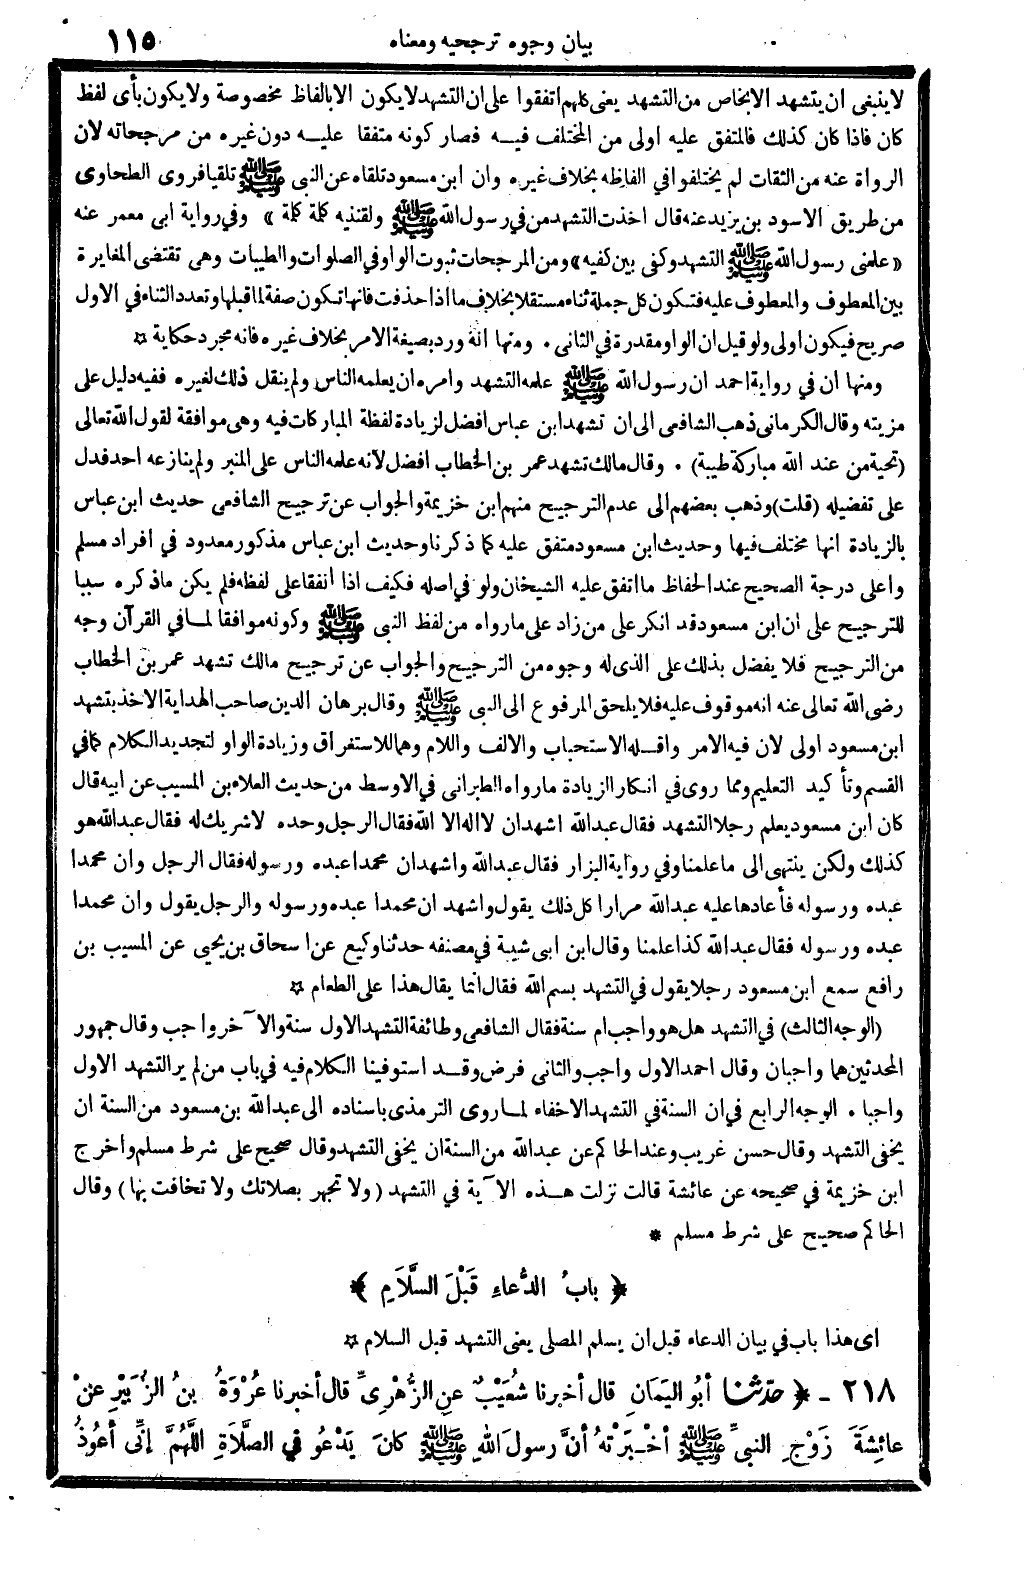 بيان وجوه ترجحيه ومعناه ١١٥
لاينبغى ان يتشهد الابخاص من التشهد يعنى كلهم اتفقوا على ان التشهد لايكون الا بالفاظ مخصوصة ولا يكون بأى لفظ
كان فاذا كان كذلك فالمتفق عليه اولى من المختلف فيه فصار كونه متفقا عليه دون غيره من مرجحاته لان
الرواة عنه من الثقات لم يختلفوا في الفاظه بخلاف غيره وان ابن مسعود تلقاه عن النبى ﷺ تلقيا فروى الطحاوى
من طريق الاسود بن يزيد عنه قال اخذت التشهد من في رسول الله ﷺ ولقنذيه كلمة كلمة » وفي رواية ابى معمر عنه
« علمنى رسول الله ﷺ التشهد وكفى بين كفيه » ومن المرجحات ثبوت الواو في الصلوات والطيبات وهى تقتضى المغايرة
بين المعطوف والمعطوف عليه فتكون كل جملة ثناء مستقلا بخلاف ما اذا حذفت فانها تكون صفة لما قبلها وتعدد الثناء في الاول
صريح فيكون اولى ولو قيل ان الواو مقدرة في الثانى . ومنها انه ورد بصيغة الامر بخلاف غيره فانه مجرد حكاية ☆
ومنها ان في رواية احمد ان رسول الله ﷺ علمه التشهد وامره ان يعلمه الناس ولم ينقل ذلك لغيره ففيه دليل على
مزيته وقال الكرمانى ذهب الشافعى الى ان تشهد ابن عباس افضل لزيادة لفظة المباركات فيه وهى موافقة لقول الله تعالى
(تحية من عند الله مباركة طيبة) . وقال مالك تشهد عمر بن الخطاب افضل لأنه علمه الناس على المنبر ولم ينازعه احد فدل
على تفضيله (قلت) وذهب بعضهم الى عدم الترجيح منهم ابن خزيمة والجواب عن ترجيح الشافعى حديث ابن عباس
بالزيادة انها مختلف فيها وحديث ابن مسعود متفق عليه كما ذكرنا وحديث ابن عباس مذكور معدود في افراد مسلم
واعلى درجة الصحيح عند الحفاظ ما اتفق عليه الشيخان ولو في اصله فكيف اذا اتفقا على لفظه فلم يكن ماذكره سببا
للترجيح على ان ابن مسعود قد انكر على من زاد على ما رواه من لفظ النبى ﷺ وكونه موافقا لما في القرآن وجه
من الترجيح فلا يفضل بذلك على الذى له وجوه من الترجيح والجواب عن ترجيح مالك تشهد عمر بن الخطاب
رضى الله تعالى عنه انه موقوف عليه فلا يلحق المرفوع الى النبى ﷺ وقال برهان الدين صاحب الهداية الاخذ بتشهد
ابن مسعود اولى لان فيه الامر واقله الاستحباب والالف واللام وهما للاستغراق وزيادة الواو لتجديد الكلام كما في
القسم وتأكيد التعليم ومما روى في انكار الزيادة ما رواه الطبرانى في الاوسط من حديث العلاء بن المسيب عن ابيه قال
كان ابن مسعود يعلم رجلا التشهد فقال عبدالله اشهد ان لا اله الا الله فقال الرجل وحده لاشريك له فقال عبدالله هو
كذلك ولكن ينتهى الى ما علمنا وفي رواية البزار فقال عبدالله واشهد ان محمدا عبده ورسوله فقال الرجل وان محمدا
عبده ورسوله فأعادها عليه عبدالله مرارا كل ذلك يقول واشهد ان محمدا عبده ورسوله والرجل يقول وان محمدا
عبده ورسوله فقال عبدالله كذا علمنا وقال ابن ابى شيبة في مصنفه حدثنا وكيع عن اسحاق بن يحيى عن المسيب بن
رافع سمع ابن مسعود رجلا يقول في التشهد بسم الله فقال انما يقال هذا على الطعام ☆
(الوجه الثالث) في التشهد هل هو واجب ام سنة فقال الشافعى وطائفة التشهد الاول سنة والآخر واجب وقال جمهور
المحدثين هما واجبان وقال احمد الاول واجب والثانى فرض وقد استوفينا الكلام فيه في باب من لم ير التشهد الاول
واجبا . الوجه الرابع في ان السنة في التشهد الاخفاء لما روى الترمذى باسناده الى عبدالله بن مسعود من السنة ان
يخفى التشهد وقال حسن غريب وعند الحاكم عن عبدالله من السنة ان يخفى التشهد وقال صحيح على شرط مسلم واخرج
ابن خزيمة في صحيحه عن عائشة قالت نزلت هذه الآية في التشهد (ولا تجهر بصلاتك ولا تخافت بها) وقال
الحاكم صحيح على شرط مسلم *
﴿ بابُ الدُّعاءِ قَبْلَ السَّلَامِ ﴾
اى هذا باب في بيان الدعاء قبل ان يسلم المصلى يعنى التشهد قبل السلام ☆
٢١٨ - ﴿ حدّثنا أبُو اليَمَانِ قال أخبرنا شُعَيْبٌ عنِ الزُّهْرِىِّ قال أخبرنا عُرْوَةُ بنُ الزُّبَيْرِ عنْ
عائِشَةَ زَوْجِ النبىِّ ﷺ أخْبَرَتْهُ أنَّ رسولَ اللهِ ﷺ كانَ يَدْعُو في الصَّلَاةِ اللَّهُمَّ إنِّى أعُوذُ